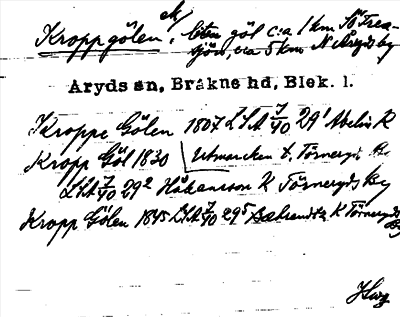 Kroppgölen, ek! liten göl c:a 1 km SÖ Frea-
sjön, c:a 5 km N Åryds by
Aryds sn, Bräkne hd, Blek. l.
Kroppe Gölen 1807 LSA J/40 29¹ Abelin K
Kropp Göl 1830 Utmarcken t. Törneryds By
LSA J/40 29² Håkansson K Törneryds By
Kropp Gölen 1845 LSA J/40 29⁵ Bæhrendtz K Törneryds By